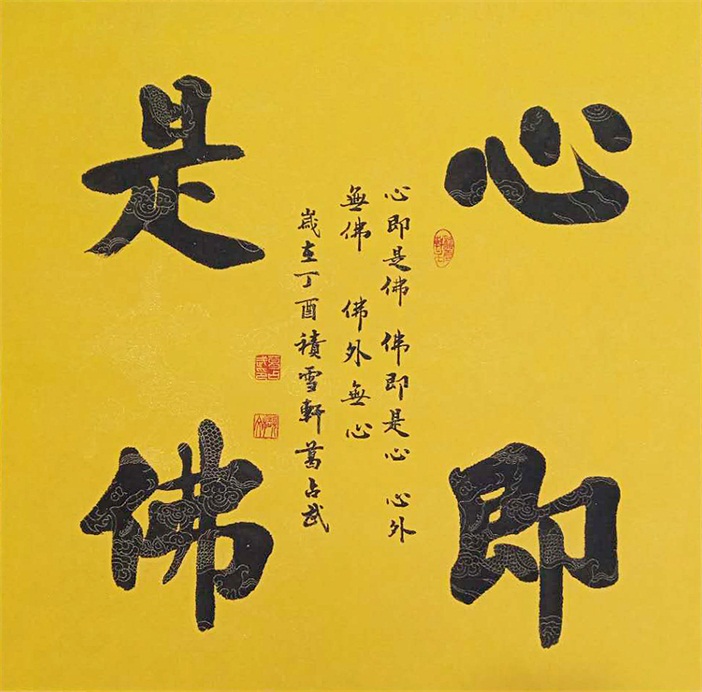 心即
是佛
心即是佛 佛即是心 心外
無佛 佛外無心
歲在丁酉積雪軒葛占武